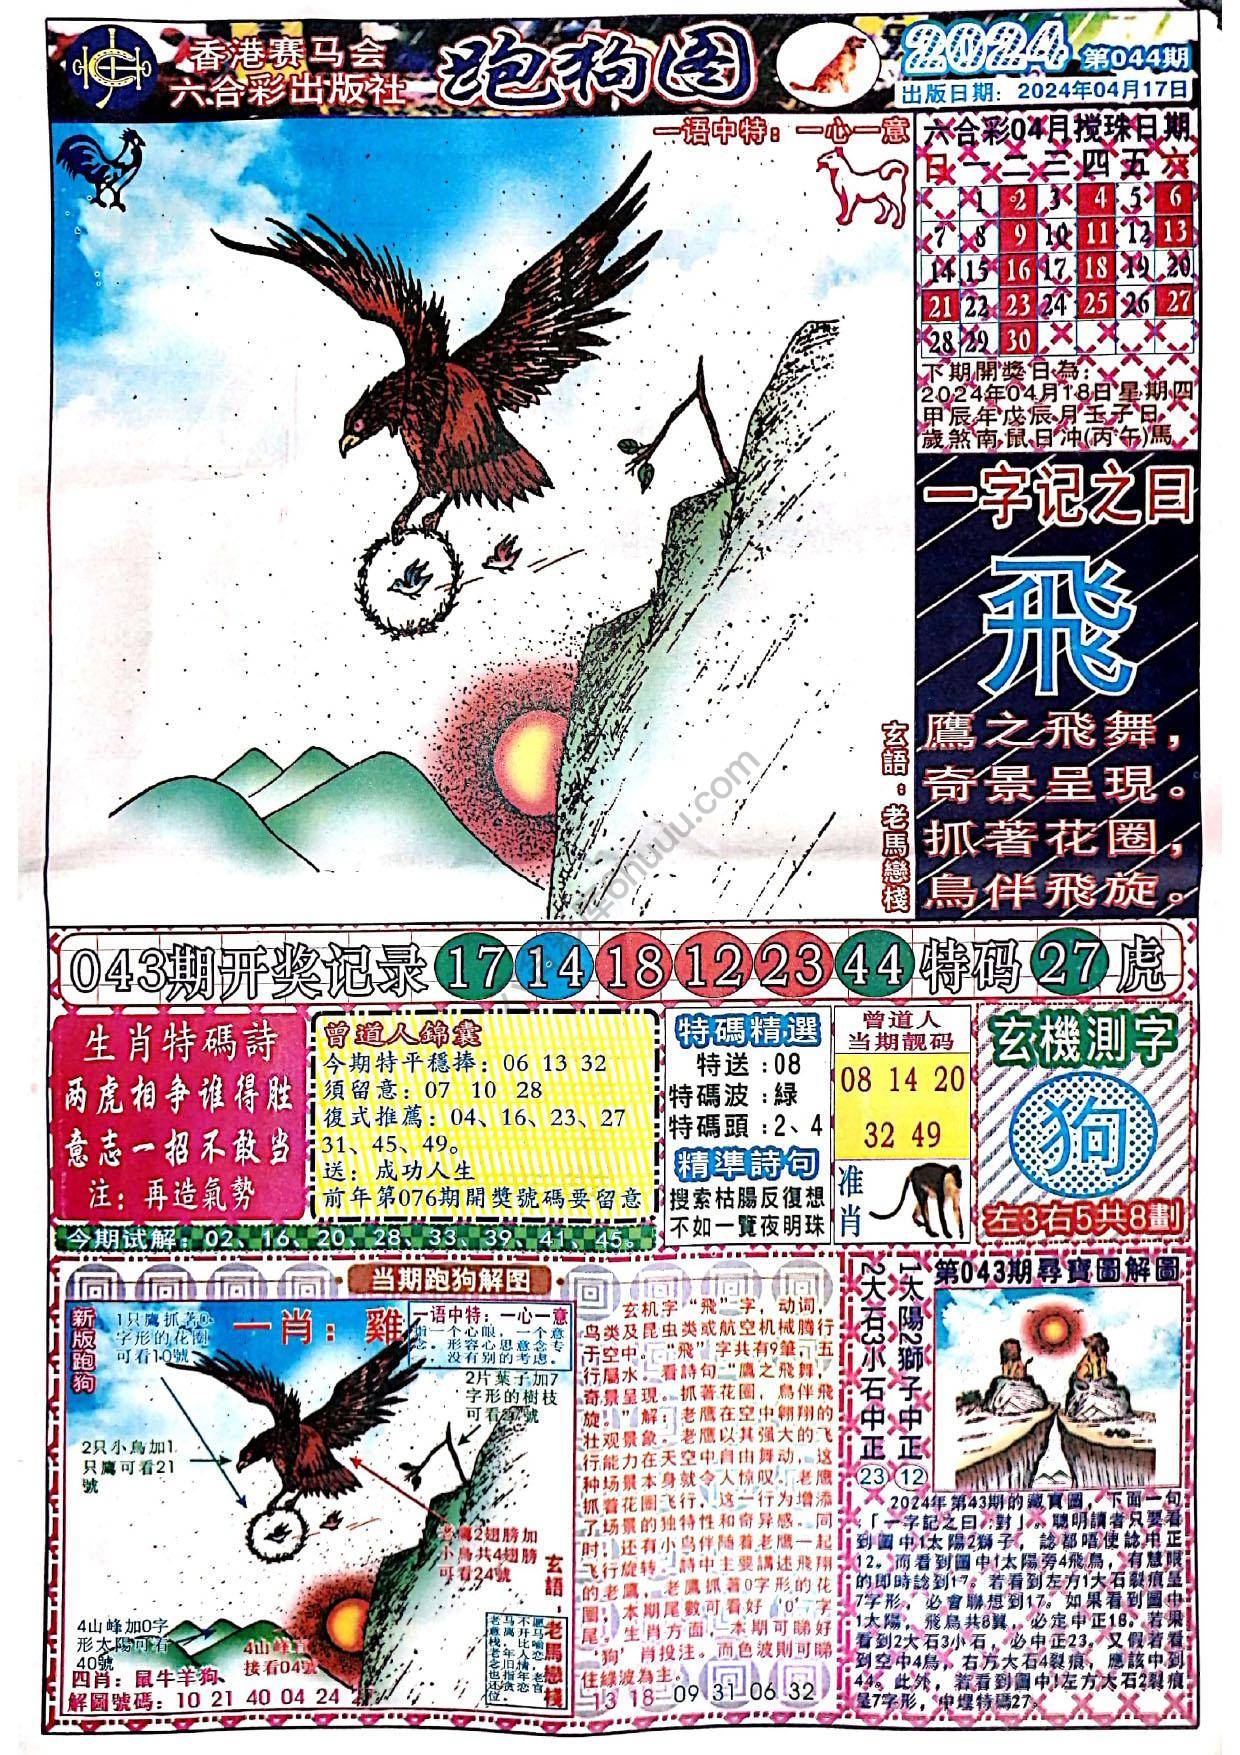 香港赛马会
六合彩出版社
跑狗图
2024 第044期
出版日期：2024年04月17日
一语中特：一心一意
六合彩04月搅珠日期
日 一 二 三 四 五 六
1 2 3 4 5 6
7 8 9 10 11 12 13
14 15 16 17 18 19 20
21 22 23 24 25 26 27
28 29 30
下期開獎日為：
2024年04月18日星期四
甲辰年戊辰月壬子日
歲煞南鼠日冲(丙午)馬
一字记之曰
飛
鷹之飛舞，
奇景呈現。
抓著花圈，
鳥伴飛旋。
玄語：老馬戀棧
043期开奖记录 17 14 18 12 23 44 特码 27 虎
生肖特碼詩
两虎相争谁得胜
意志一招不敢当
注：再造氣勢
曾道人錦囊
今期特平穩捧：06 13 32
須留意：07 10 28
復式推薦：04、16、23、27
31、45、49。
送：成功人生
前年第076期開獎號碼要留意
今期试解：02、16、20、28、33、39、41、45。
特碼精選
特送：08
特碼波：緑
特碼頭：2、4
精準詩句
搜索枯腸反復想
不如一覽夜明珠
曾道人
当期靓码
08 14 20
32 49
准肖
玄機測字
狗
左3右5共8劃
当期跑狗解图
新版跑狗
1只鷹抓著0
字形的花圈
可看10號
一肖：雞
一语中特：一心一意
指一个心眼，一个意
念。形容心思意念专
没有别的考虑。
2片葉子加7
字形的樹枝
可看27號
2只小鳥加1
只鷹可看21
號
老鷹2翅膀加
小鳥共4翅膀
可看24號
4山峰加0字
形太陽可看
40號
4山峰直
接看04號
玄語：老馬戀棧
四肖：鼠牛羊狗
解圖號碼：10 21 40 04 24 27
玄机字“飛”字，动词，
鸟类及昆虫类或航空机械腾行
于空中。“飛”字共有9筆，五
行屬水。看詩句“鷹之飛舞，
奇景呈現。抓著花圈，鳥伴飛
旋。”解：老鷹在空中翱翔的
壮观景象，老鷹以其强大的飞
行能力在天空中自由舞动，这
种场景本身就令人惊叹。老鷹
抓着花圈飞行，这一行为增添
了场景的独特性和奇异感。同
时，还有小鸟伴随着老鷹一起
飞行旋转。詩中主要講述飛翔
的老鷹，老鷹抓著0字形的花
圈，本期尾數可看好‘0’字
尾。生肖方面，本期可睇好
‘狗’肖投注。而色波則可睇
住緑波為主。
13 18 09 31 06 32
第043期尋寶圖解圖
1太陽2獅子中正⑫
2大石3小石中正㉓
2024年第43期的藏寶圖，下面一句
：「一字記之曰：對」。聰明讀者只要看
到圖中1太陽2獅子，諗都唔使諗中正
12。而看到圖中1太陽旁4飛鳥，有慧眼
的即時諗到17。若看到左方1大石裂痕呈
7字形，必會聯想到17。如果看到圖中
1太陽，飛鳥共8翼，必定中正18。若果
看到2大石3小石，必中正23。又假若看
到空中4鳥，右方大石4裂痕，應該中到
44。此外，若看到圖中1左方大石2裂痕
呈7字形，中埋特碼27。